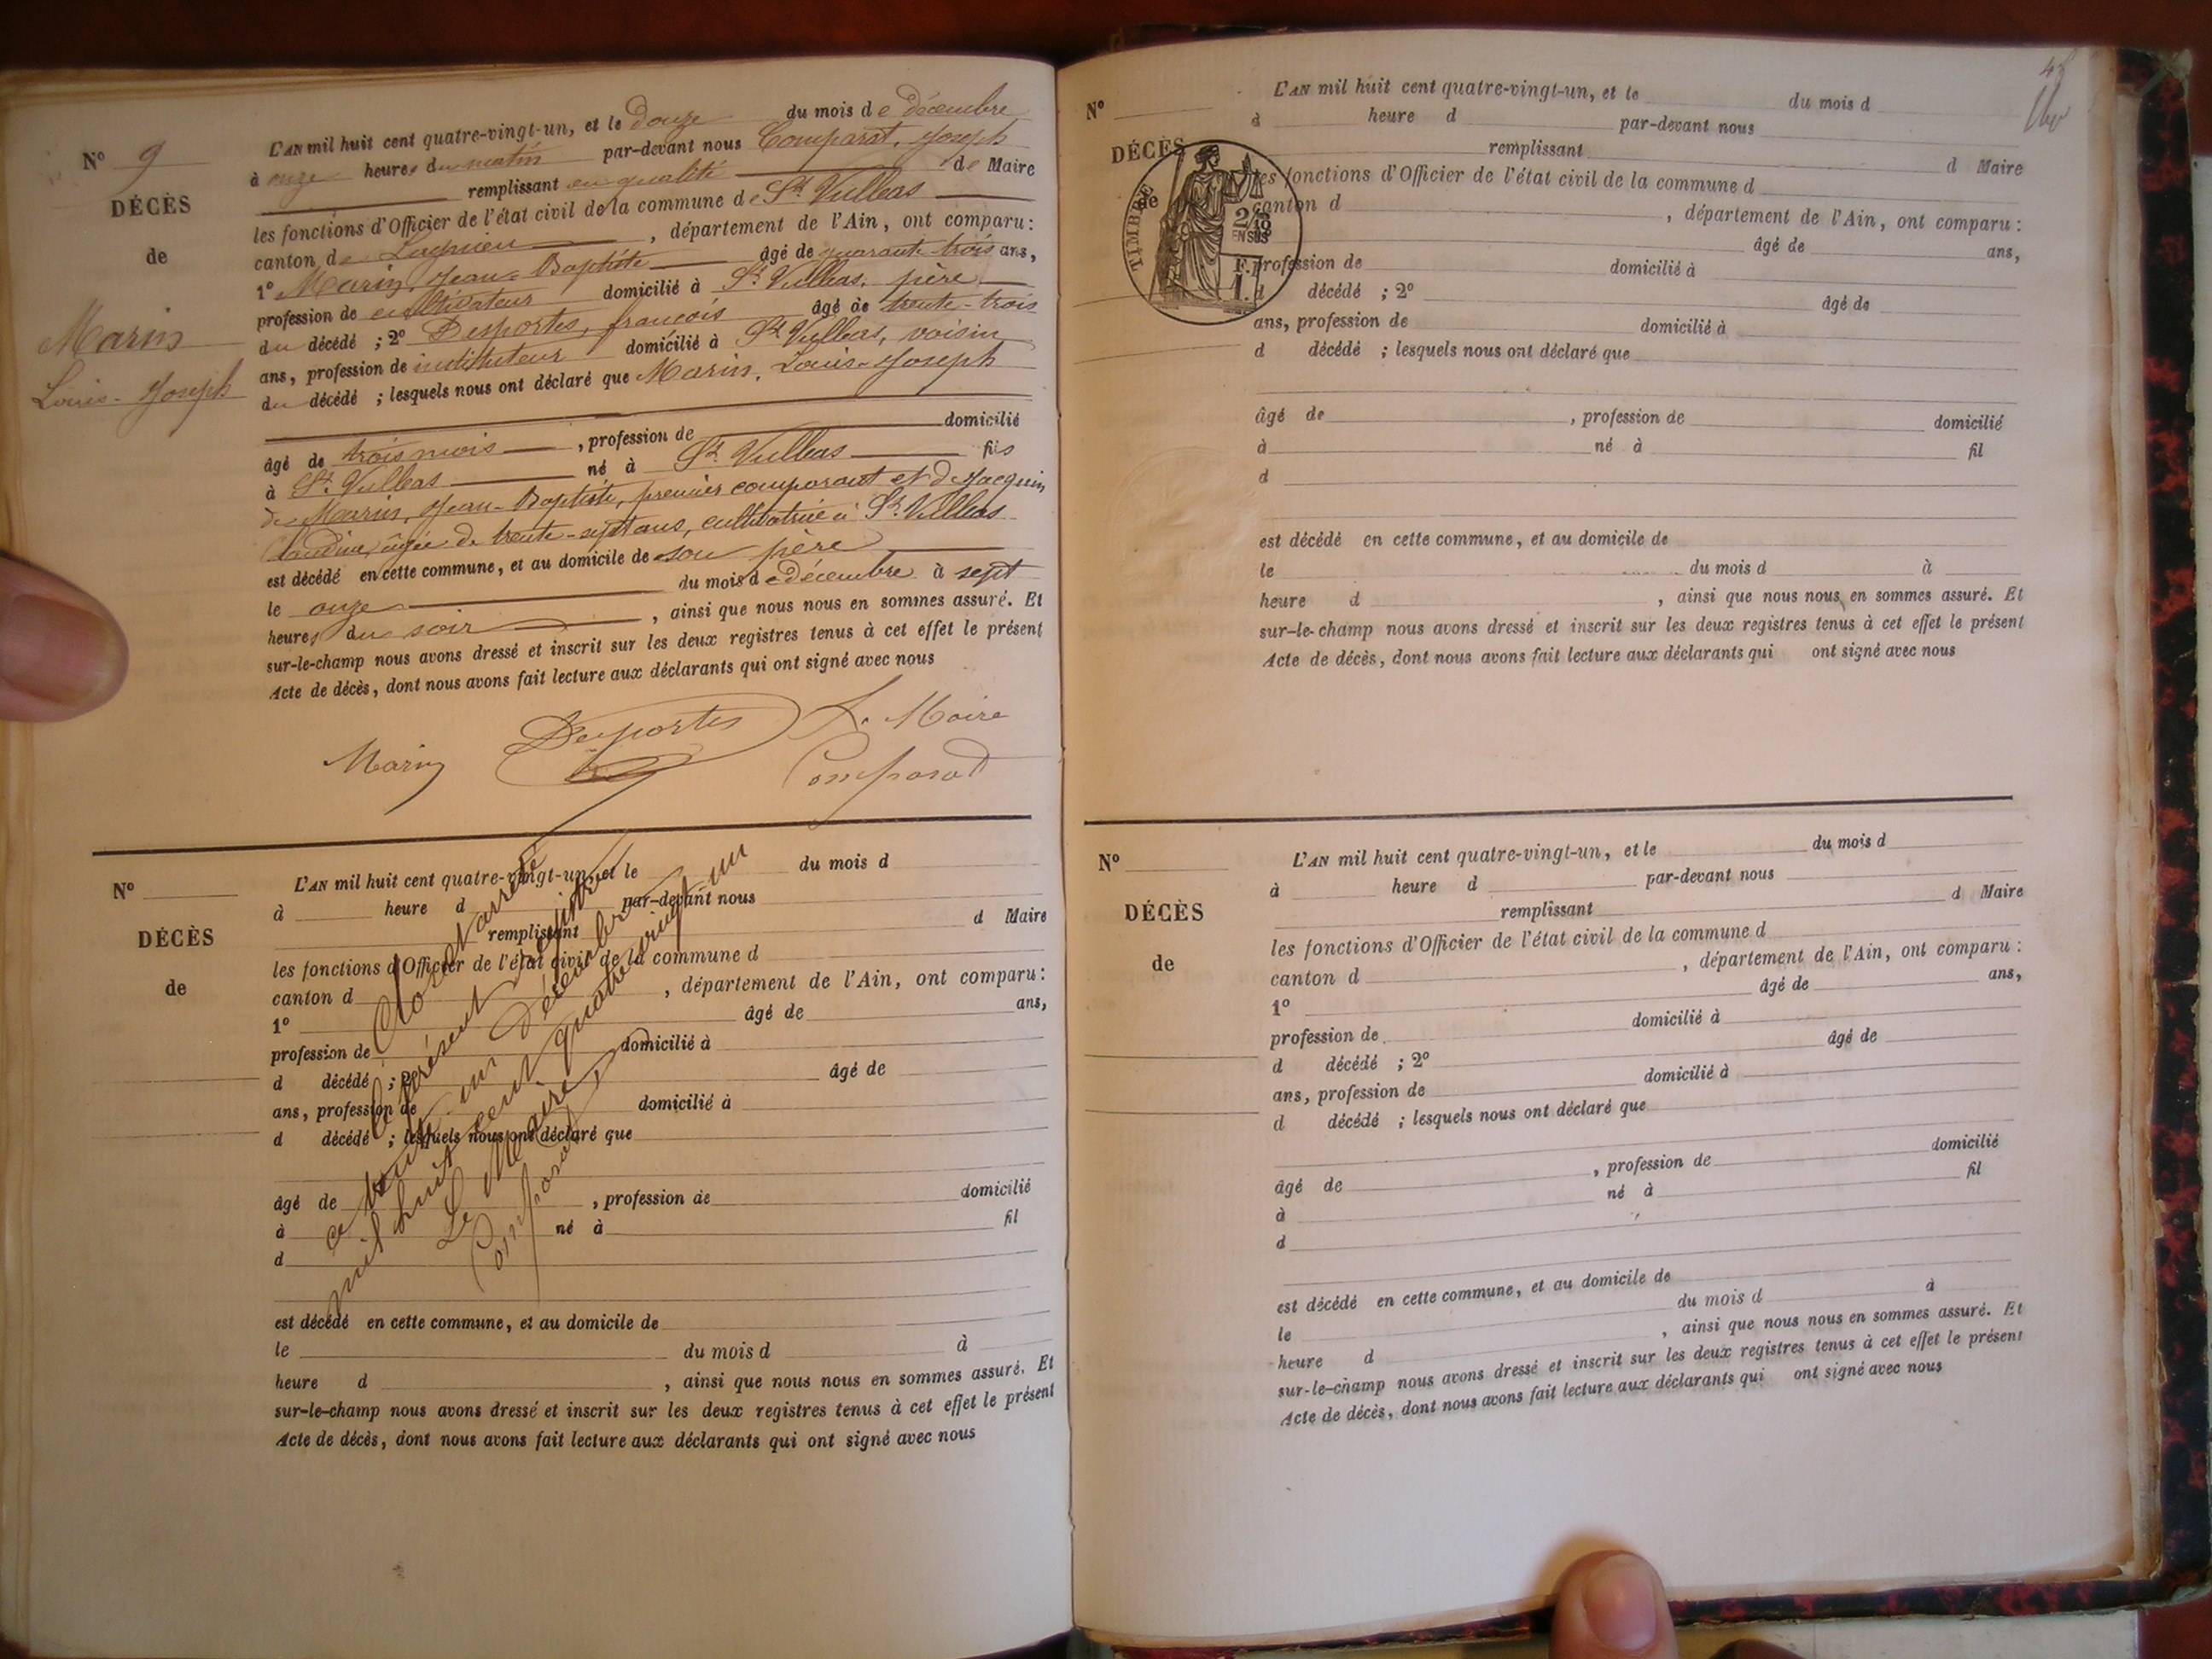 N° 9
DÉCÈS
de
Marin
Louis-Joseph
L'AN mil huit cent quatre-vingt-un, et le douze du mois de décembre
à onze heures du matin par-devant nous Comparat, Joseph
remplissant en qualité de Maire
les fonctions d'Officier de l'état civil de la commune de St Vulbas
canton de Lagnieu, département de l'Ain, ont comparu :
1° Marin, Jean-Baptiste âgé de quarante-trois ans,
profession de cultivateur domicilié à St Vulbas, père
du décédé ; 2° Desportes, françois âgé de trente-trois
ans, profession de instituteur domicilié à St Vulbas, voisin
du décédé ; lesquels nous ont déclaré que Marin, Louis-Joseph
âgé de trois mois, profession de domicilié
à St Vulbas né à St Vulbas fils
de Marin, Jean-Baptiste, premier comparant et de Jacquin
Claudine, âgée de trente-sept ans, cultivatrice à St Vulbas
est décédé en cette commune, et au domicile de son père
le onze du mois de décembre à sept
heures du soir, ainsi que nous nous en sommes assuré. Et
sur-le-champ nous avons dressé et inscrit sur les deux registres tenus à cet effet le présent
Acte de décès, dont nous avons fait lecture aux déclarants qui ont signé avec nous
Marin Desportes Le Maire
Comparat
N°
DÉCÈS
de
L'AN mil huit cent quatre-vingt-un, et le du mois d
à heure d par-devant nous
remplissant d Maire
les fonctions d'Officier de l'état civil de la commune d
canton d , département de l'Ain, ont comparu :
1° âgé de ans,
profession de domicilié à
d décédé ; 2° âgé de
ans, profession de domicilié à
d décédé ; lesquels nous ont déclaré que
âgé de , profession de domicilié
à né à fil
d
est décédé en cette commune, et au domicile de
le du mois d à
heure d , ainsi que nous nous en sommes assuré. Et
sur-le-champ nous avons dressé et inscrit sur les deux registres tenus à cet effet le présent
Acte de décès, dont nous avons fait lecture aux déclarants qui ont signé avec nous
Clos et arrêté
le présent registre
ce trente un Décembre
mil huit cent quatre vingt un
Le Maire,
Comparat
N°
DÉCÈS
de
TIMBRE
L'AN mil huit cent quatre-vingt-un, et le du mois d
à heure d par-devant nous
remplissant d Maire
les fonctions d'Officier de l'état civil de la commune d
canton d , département de l'Ain, ont comparu :
âgé de ans,
profession de domicilié à
d décédé ; 2° âgé de
ans, profession de domicilié à
d décédé ; lesquels nous ont déclaré que
âgé de , profession de domicilié
à né à fil
d
est décédé en cette commune, et au domicile de
le du mois d à
heure d , ainsi que nous nous en sommes assuré. Et
sur-le-champ nous avons dressé et inscrit sur les deux registres tenus à cet effet le présent
Acte de décès, dont nous avons fait lecture aux déclarants qui ont signé avec nous
N°
DÉCÈS
de
L'AN mil huit cent quatre-vingt-un, et le du mois d
à heure d par-devant nous
remplissant d Maire
les fonctions d'Officier de l'état civil de la commune d
canton d , département de l'Ain, ont comparu :
1° âgé de ans,
profession de domicilié à
d décédé ; 2° âgé de
ans, profession de domicilié à
d décédé ; lesquels nous ont déclaré que
âgé de , profession de domicilié
à né à fil
d
est décédé en cette commune, et au domicile de
le du mois d à
heure d , ainsi que nous nous en sommes assuré. Et
sur-le-champ nous avons dressé et inscrit sur les deux registres tenus à cet effet le présent
Acte de décès, dont nous avons fait lecture aux déclarants qui ont signé avec nous